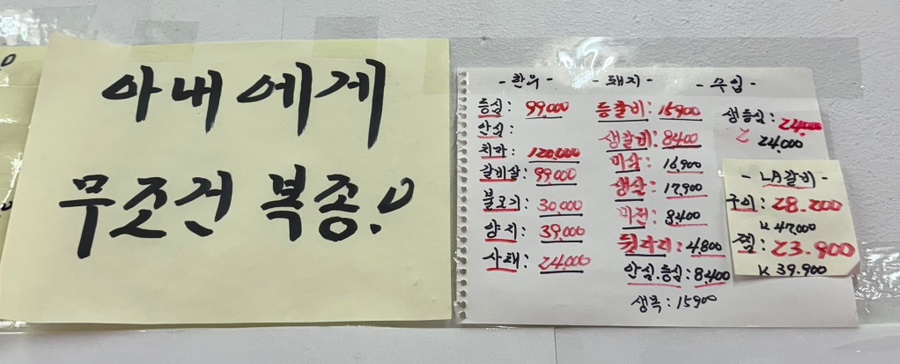 아내에게
무조건 복종.!
- 한우 -
등심: 99,000
안심:
치마: 120,000
갈비살: 99,000
불고기: 30,000
양지: 39,000
사태: 24,000
- 돼지 -
등갈비: 15900
생갈비: 8400
미삼: 16,900
생삼: 17,900
미전: 8400
뒷다리: 4,800
안심.등심: 8400
생목: 15900
- 수입 -
생등심: 24,000
24,000
- LA갈비 -
구이: 28.200
K 47,000
찜: 23.900
K 39.900